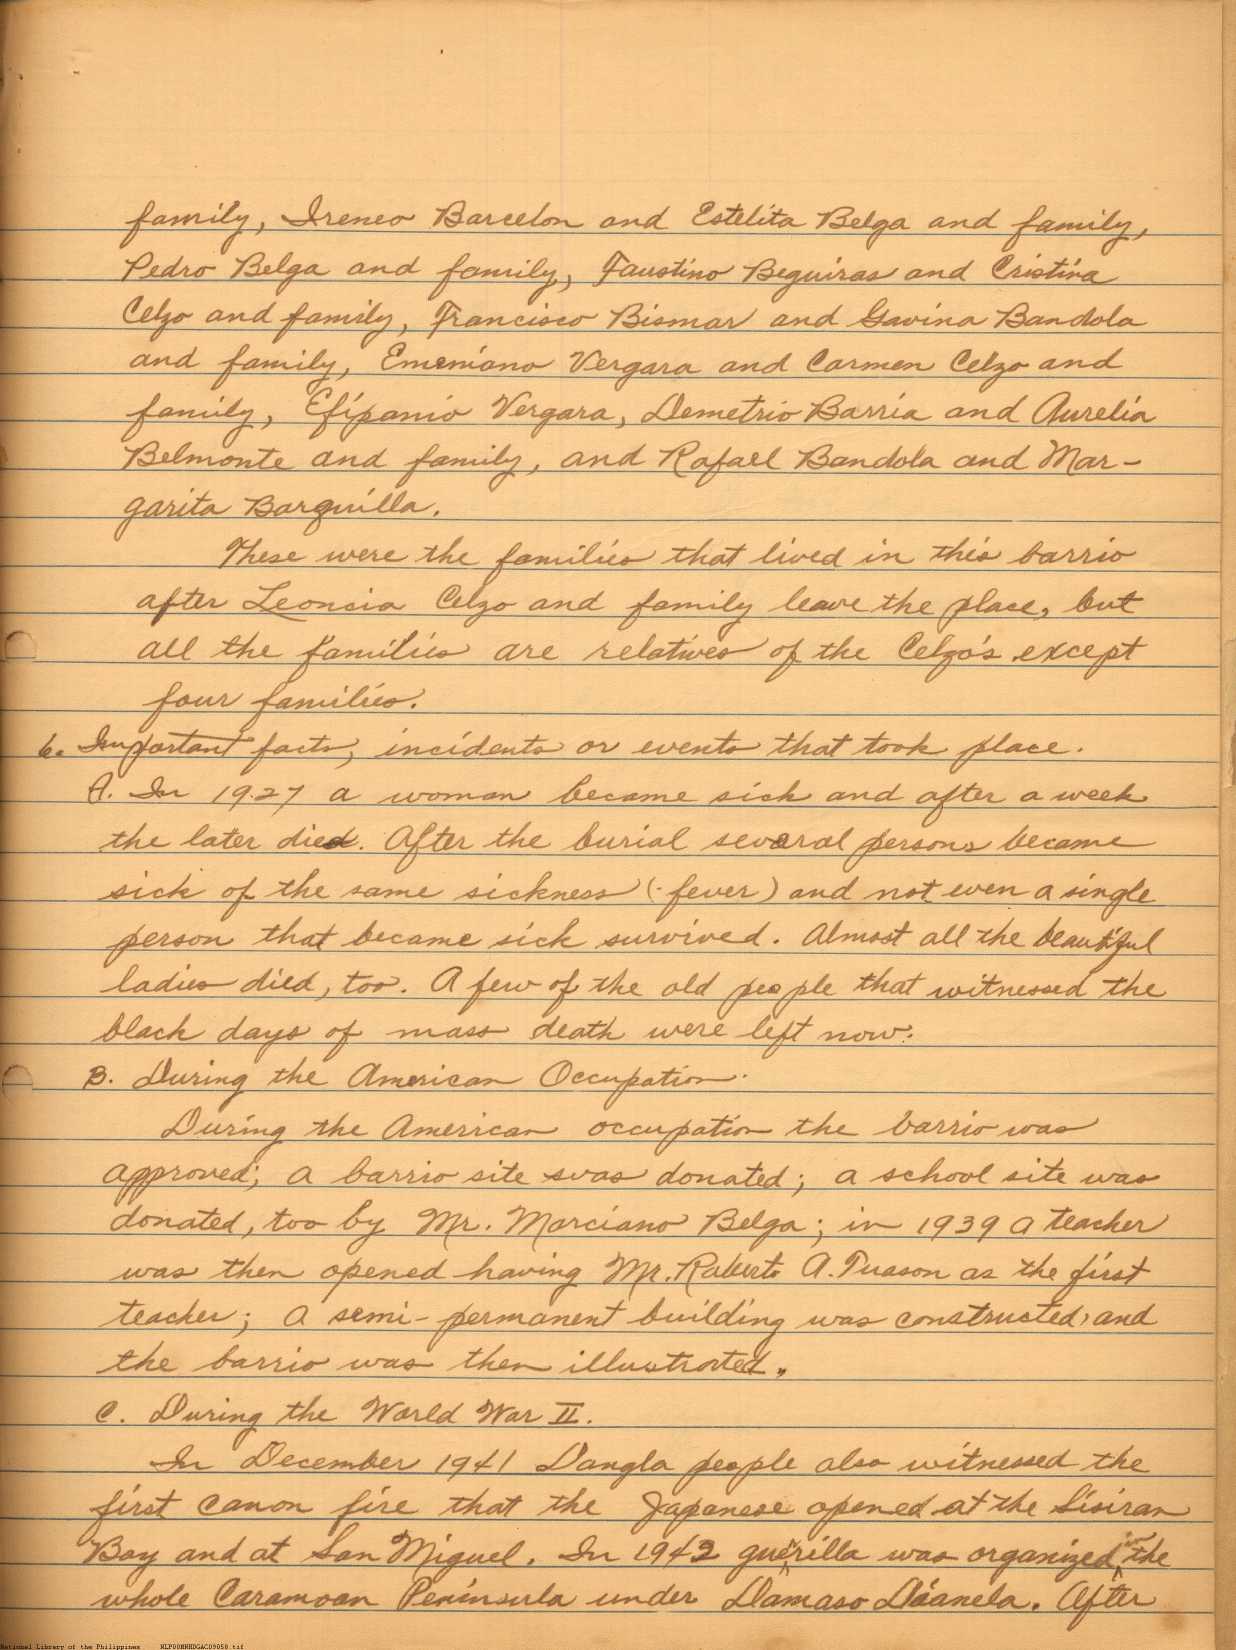 family, Ireneo Barcelon and Estelita Belga and family,
Pedro Belga and family, Faustino Beguiras and Cristina
Celzo and family, Francisco Bismar and Gavina Bandola
and family, Emeniano Vergara and Carmen Celzo and
family, Efipanio Vergara, Demetrio Barria and Aurelia
Belmonte and family, and Rafael Bandola and Mar-
garita Barquilla.
These were the families that lived in this barrio
after Leoncia Celzo and family leave the place, but
all the families are relatives of the Celzo's except
four families.
6. Important facts, incidents or events that took place.
A. In 1927 a woman became sick and after a week
the later died. After the burial several persons became
sick of the same sickness (fever) and not even a single
person that became sick survived. Almost all the beautiful
ladies died, too. A few of the old people that witnessed the
black days of mass death were left now.
B. During the American Occupation.
During the American occupation the barrio was
approved; a barrio site was donated; a school site was
donated, too by Mr. Marciano Belga; in 1939 a teacher
was then opened having Mr. Roberto A. Tuason as the first
teacher; a semi-permanent building was constructed, and
the barrio was then illustrated.
C. During the World War II.
In December 1941 Dangla people also witnessed the
first canon fire that the Japanese opened at the Sisiran
Bay and at San Miguel. In 1942 guerilla was organized in the
whole Caramoan Peninsula under Damaso Dianela. After
National Library of the Philippines NLP00MNHDGAC09050.tif